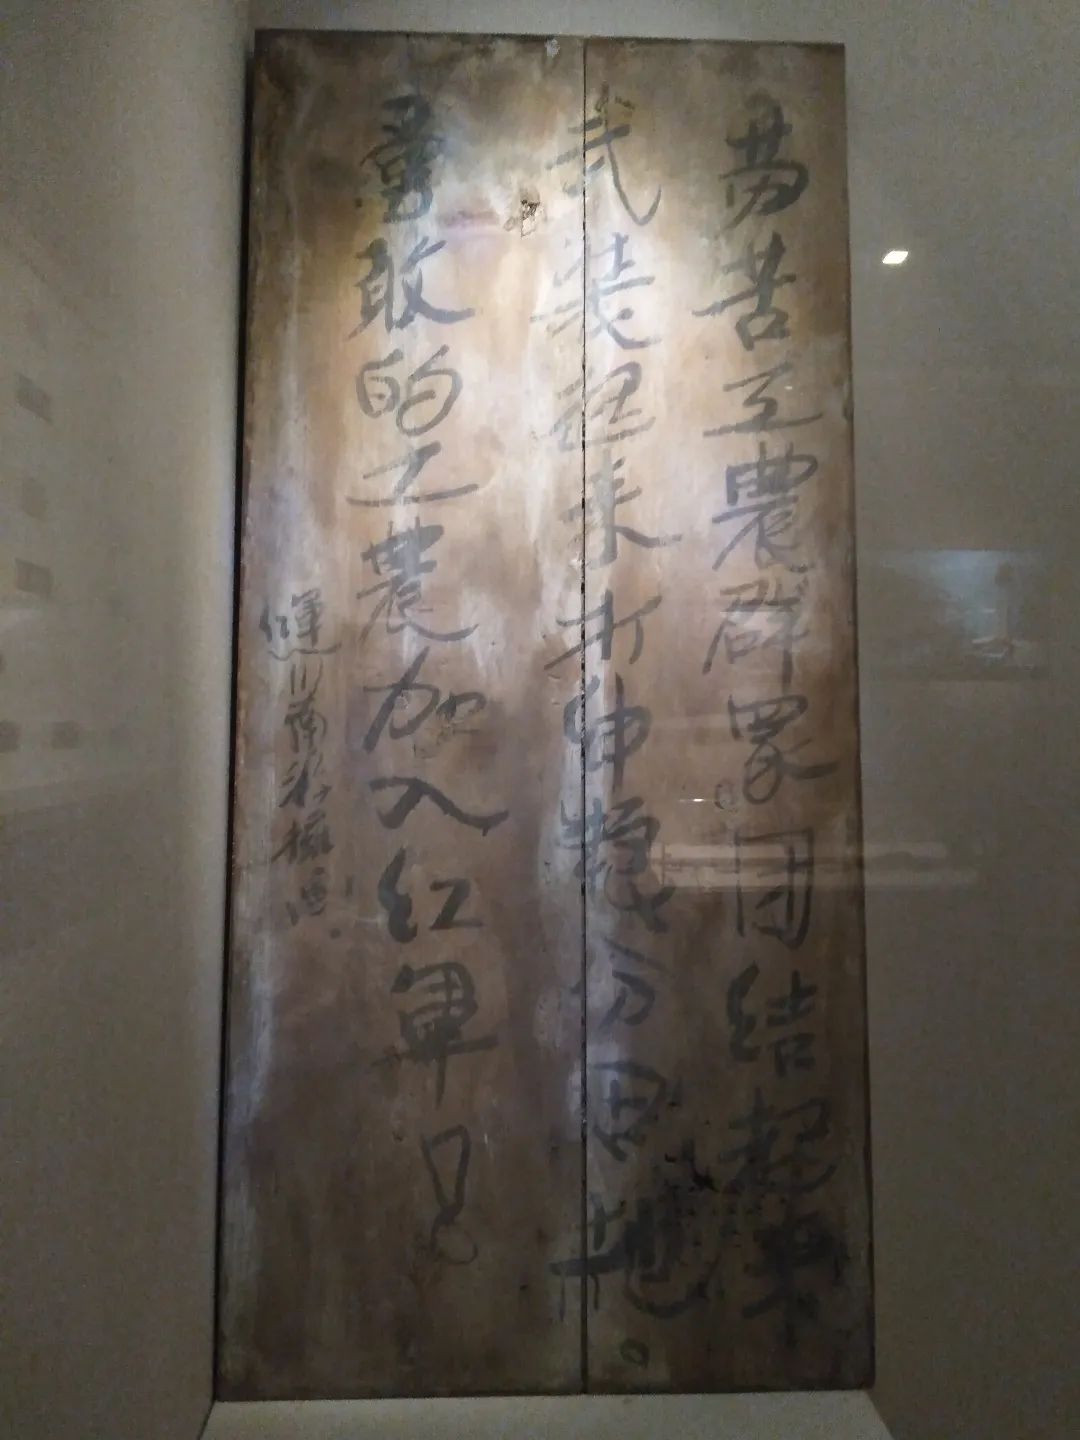 劳苦工農群眾团结起来
武装起来打绅糧分田地。
勇敢的工農加入红軍!
川南